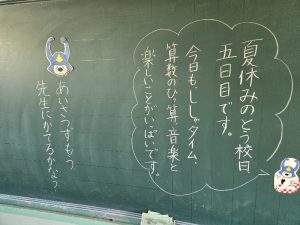 夏休みのとう校日
五日目です。
今日も、ししゃタイム、
算数のひっ算、音楽と
楽しいことがいっぱいです。
あいさつずもう
先生にかてるかな?